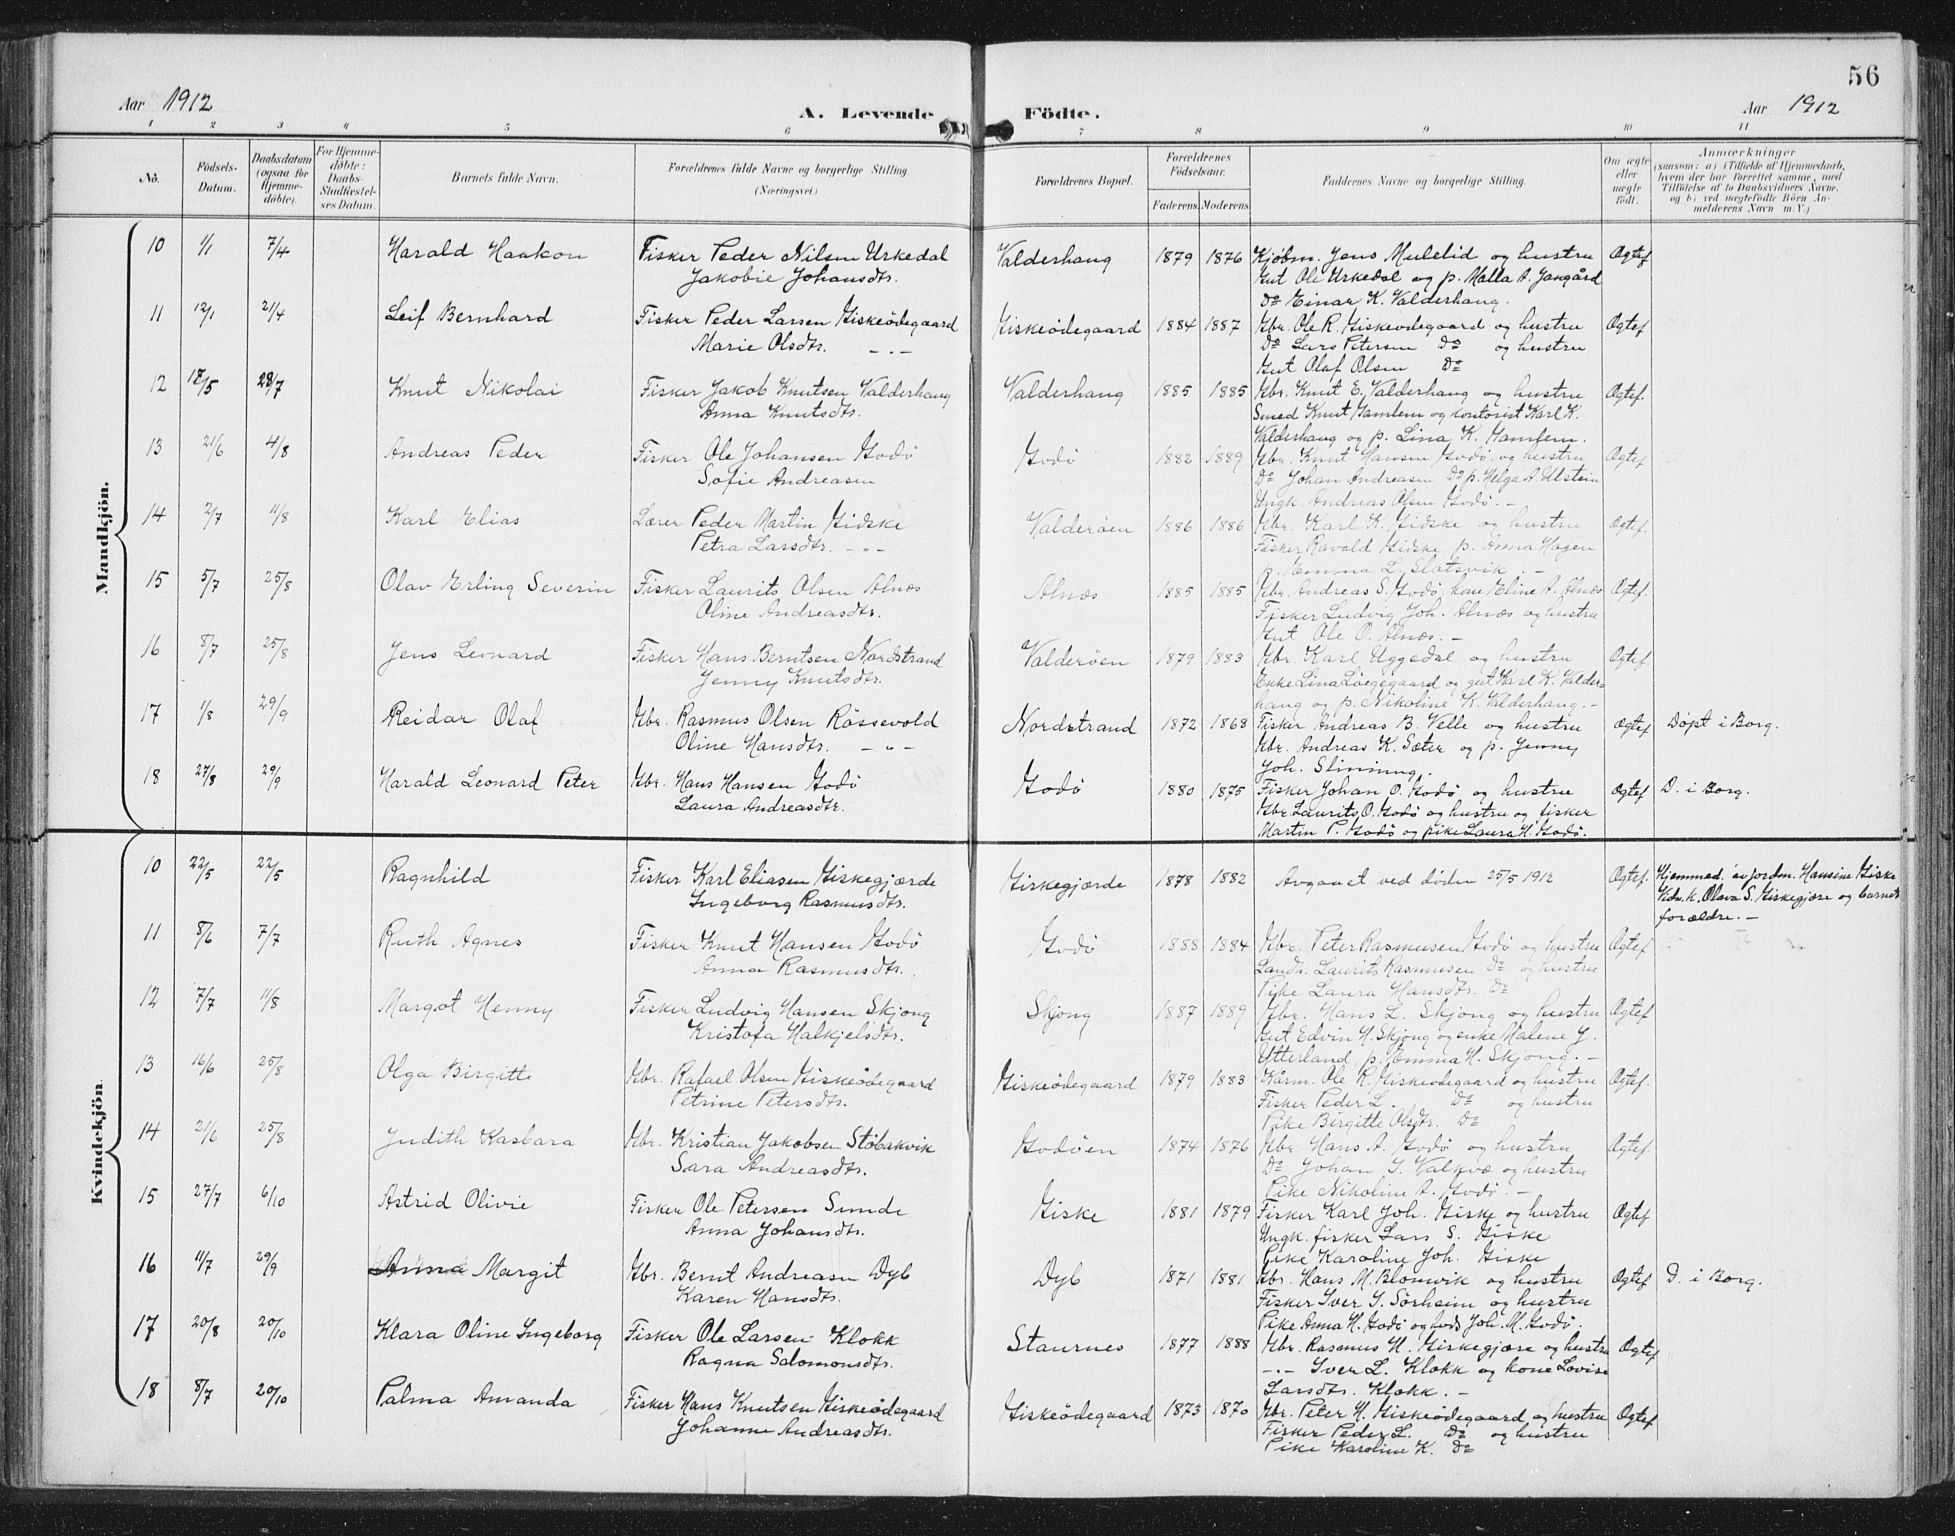 56
Aar 1912
A. Levende Födte.
Aar 1912
1 2 3 4 5 6 7 8 9 10 11
No. Födsels-Datum. Daabsdatum (ogsaa for Hjemme-döbte). For Hjemme-döbte: Daabs-Stadfæstel-ses Datum. Barnets fulde Navn. Forældrenes fulde Navne og borgerlige Stilling. (Næringsvei.) Forældrenes Bopæl. Forældrenes Födselsaar. Faderens Moderens Faddernes Navne og borgerlige Stilling. Om ægte eller uægte födt. Anmærkninger
(saasom: a) i Tilfælde af Hjemmedaab,
hvem der har forrettet samme, med
Tilföielse af to Daabsvidners Navne.
og b) ved uægtefödte Börn An-
melderens Navn m. V.)
Mandkjön.
10 1/1 7/4 Harald Haakon Fisker Peder Nilsen Urkedal Valderhaug 1879 1876 Kjøbm. Jens Mulelid og hustru Ægtef
Jakobie Johansdtr. Gut Ole Urkedal og p. Malla A. Gangård
Do Einar K. Valderhaug.
11 12/1 21/4 Leif Bernhard Fisker Peder Larsen Giskeödegaard Giskeödegaard 1884 1887 Gbr. Ole R. Giskeödegaard og hustru Ægtef
Marie Olsdtr. -"- Do Lars Petersen Do og hustru
Gut Olaf Olsen Do
12 18/5 28/7 Knut Nikolai Fisker Jakob Knutsen Valderhaug Valderhaug 1885 1885 Gbr. Knut E. Valderhaug og hustru Ægtef.
Anna Knutsdtr. Smed Knut Gamlem og kontorist Karl K.
Valderhaug og p. Lina K. Gamlem.
13 21/6 4/8 Andreas Peder Fisker Ole Johansen Godö Godö 1882 1889 Gbr. Knut Hansen Godö og hustru Ægtef
Sofie Andreasen Do Johan Andreasen Do p. Helga A. Ulstein
Ungk. Andreas Olsen Godö. -
14 2/7 11/8 Karl Elias Lærer Peder Martin Gidske Valderöen 1886 1886 Gbr. Karl K. Gidske og hustru Ægtef.
Petra Larsdtr. -"- Fisker Ravald Gidske, p. Anna Hagen
p. Emma L. Slotsvik. -
15 5/7 25/8 Olav Erling Severin Fisker Laurits Olsen Alnæs Alnæs 1885 1885 Gbr. Andreas S. Godö, kone Eline A. Alnæs Ægtef.
Oline Andreasdtr. Fisker Ludvig Joh. Alnæs og hustru
Gut Ole O. Alnæs. -
16 8/7 25/8 Jens Leonard Fisker Hans Berntsen Nordstrand Valderöen 1879 1883 Gbr Karl Uggedal og hustru Ægtef.
Jenny Knutsdtr. Enke Lina Løgegaard og gut Karl K. Valder-
haug og p. Nikoline K. Valderhaug. -
17 1/8 29/9 Reidar Olaf Gbr. Rasmus Olsen Røssevold Nordstrand 1872 1868 Fisker Andreas B. Velle og hustru Ægtef Döpt i Borg.
Oline Hansdtr. -"- Gbr. Andreas K. Sæter og p. Jenny
Joh. Slinning.
18 27/8 29/9 Harald Leonard Peter Gbr. Hans Hansen Godö Godö 1880 1875 Fisker Johan O. Godö og hustru Ægtef D. i Borg.
Laura Andreasdtr. Gbr Laurits O. Godö og hustru og fisker
Martin P. Godö og pike Laura H. Godö.
Kvindekjön.
10 22/5 22/5 Ragnhild Fisker Karl Eliasen Giskegjærde Giskegjærde 1878 1882 Avgaaet ved döden 25/5 1912 Ægtef. Hjemmed. av jordm. Hansine Giske
Ingeborg Rasmusdtr. Vidn. k. Olava S. Giskegjære og barnets
forældre. -
11 8/6 7/7 Ruth Agnes Fisker Knut Hansen Godö Godö 1888 1884 Gbr. Peter Rasmusen Godö og hustru Ægtef
Anna Rasmusdtr. Landh. Laurits Rasmusen Do og hustru
Pike Laura Hansdtr. Do
12 7/7 11/8 Margot Henny Fisker Ludvig Hansen Skjong Skjong 1887 1889 Gbr. Hans L. Skjong og hustru Ægtef
Kristofa Halkjelsdtr. Gut Edvin H. Skjong og enke Malene J.
Ytterland p. Emma H. Skjong. -
13 16/6 25/8 Olga Birgitte Gbr. Rafael Olsen Giskeödegaard Giskeödegaard 1879 1883 Kårm. Ole R. Giskeödegaard og hustru Ægtef.
Petrine Petersdtr. Fisker Peder L. Do og hustru
Pike Birgitte Olsdtr. Do
14 21/6 25/8 Judith Kasbara Gbr. Kristian Jakobsen Stöbakvik Godöen 1874 1876 Gbr. Hans A. Godö og hustru Ægtef.
Sara Andreasdtr. Do Johan J. Valkvæ og hustru
Pike Nikoline A. Godö. -
15 27/7 6/10 Astrid Olivie Fisker Ole Petersen Sunde Giske 1881 1879 Fisker Karl Joh. Giske og hustru Ægtef
Anna Johansdtr. Ungk. fisker Lars S. Giske
Pike Karoline Joh. Giske
16 11/7 29/9 Anna Margit Gbr. Bernt Andreasen Dyb Dyb 1871 1881 Gbr. Hans M. Blomvik og hustru Ægtef D. i Borg.
Karen Hansdtr. Fisker Iver J. Sörheim og hustru
Pike Anna H. Godö og hods Joh. M. Godö.
17 20/8 20/10 Klara Oline Ingeborg Fisker Ole Larsen Klokk Staurnes 1877 1888 Gbr. Rasmus H. Giskegjære og hustru Ægtef
Ragna Salomonsdtr. -"- Iver L. Klokk og kone Lovise
Larsdtr. Klokk. -
18 8/7 20/10 Palma Amanda Fisker Hans Knutsen Giskeödegaard Giskeödegaard 1873 1870 Gbr. Peter H. Giskeödegaard og hustru Ægtef
Johanne Andreasdtr. Fisker Peder L. Do og hustru
Pike Karoline K. Do